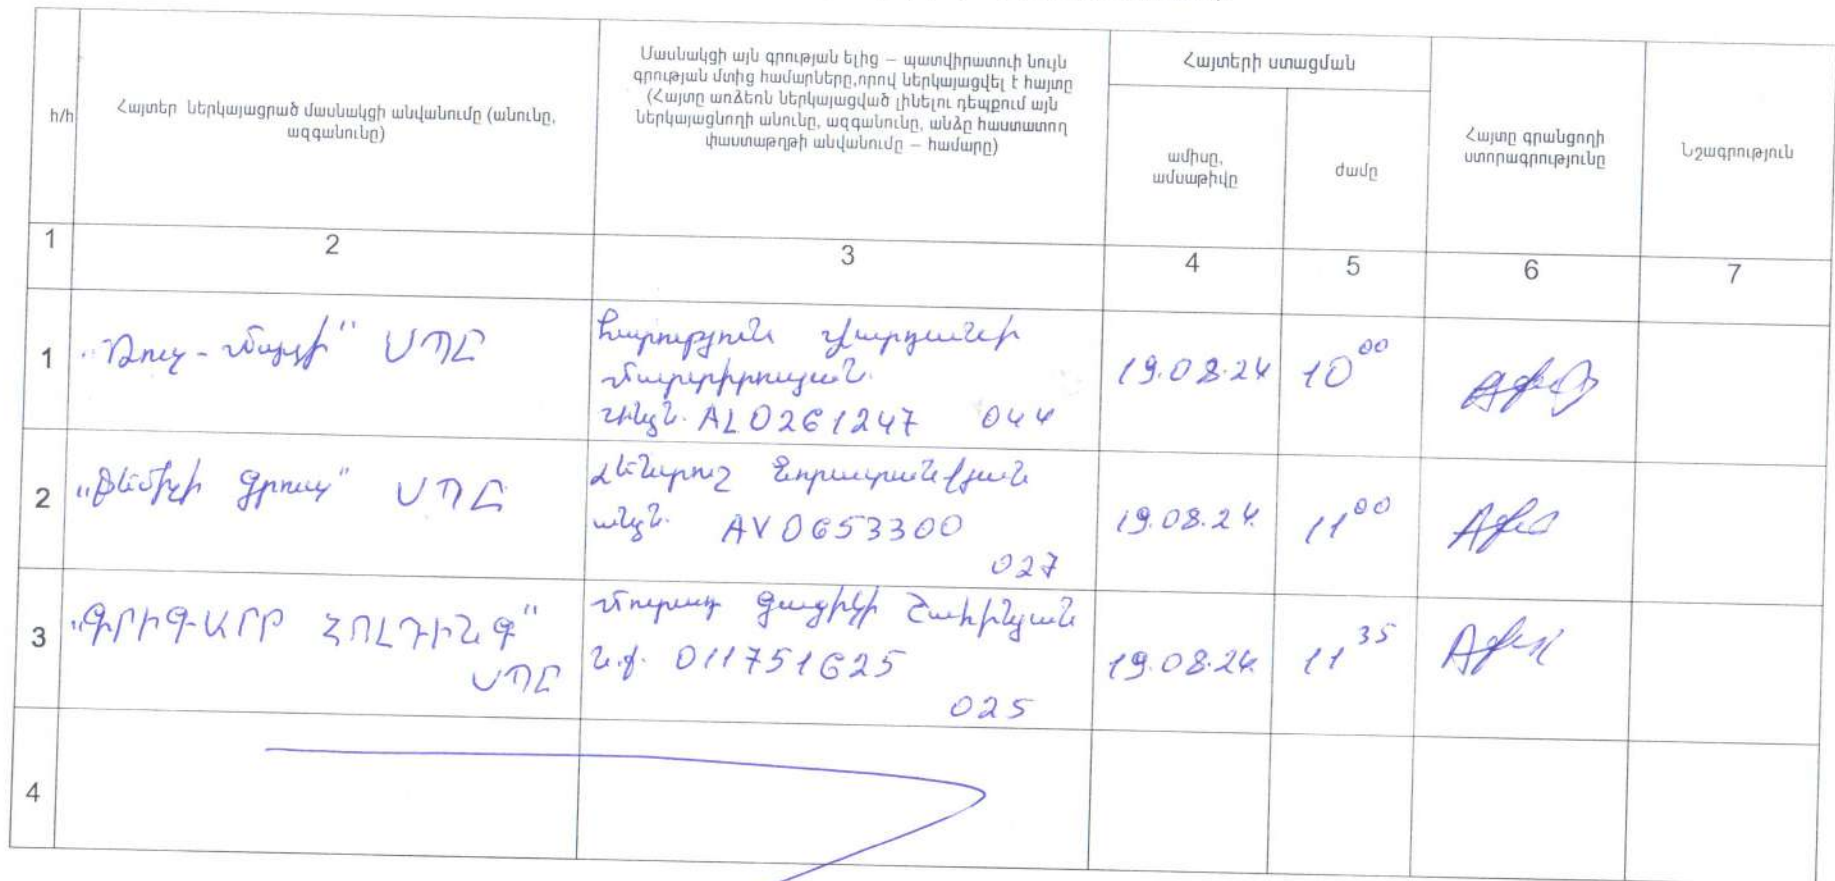 հ/հ
Հայտեր ներկայացրած մասնակցի անվանումը (անունը,
ազգանունը)
Մասնակցի այն գրության ելից – պատվիրատուի նույն
գրության մտից համարները,որով ներկայացվել է հայտը
(Հայտը առձեռն ներկայացված լինելու դեպքում այն
ներկայացնողի անունը, ազգանունը, անձը հաստատող
փաստաթղթի անվանումը – համարը)
Հայտերի ստացման
ամիսը,
ամսաթիվը
ժամը
Հայտը գրանցողի
ստորագրությունը
Նշագրություն
1
2
3
4
5
6
7
1
ՍՊԸ
Հարություն Վարդանի
Մարտիրոսյան
AL0261247 044
19.08.24
10 00
2
ՍՊԸ
AV0653300
027
19.08.24
11 00
3
"ԳՐԻԳ-ԱՐԹ ՀՈԼԴԻՆԳ"
ՍՊԸ
Մուրադ Գագիկի Շահինյան
ն.ք. 011751625
025
19.08.24
11 35
4